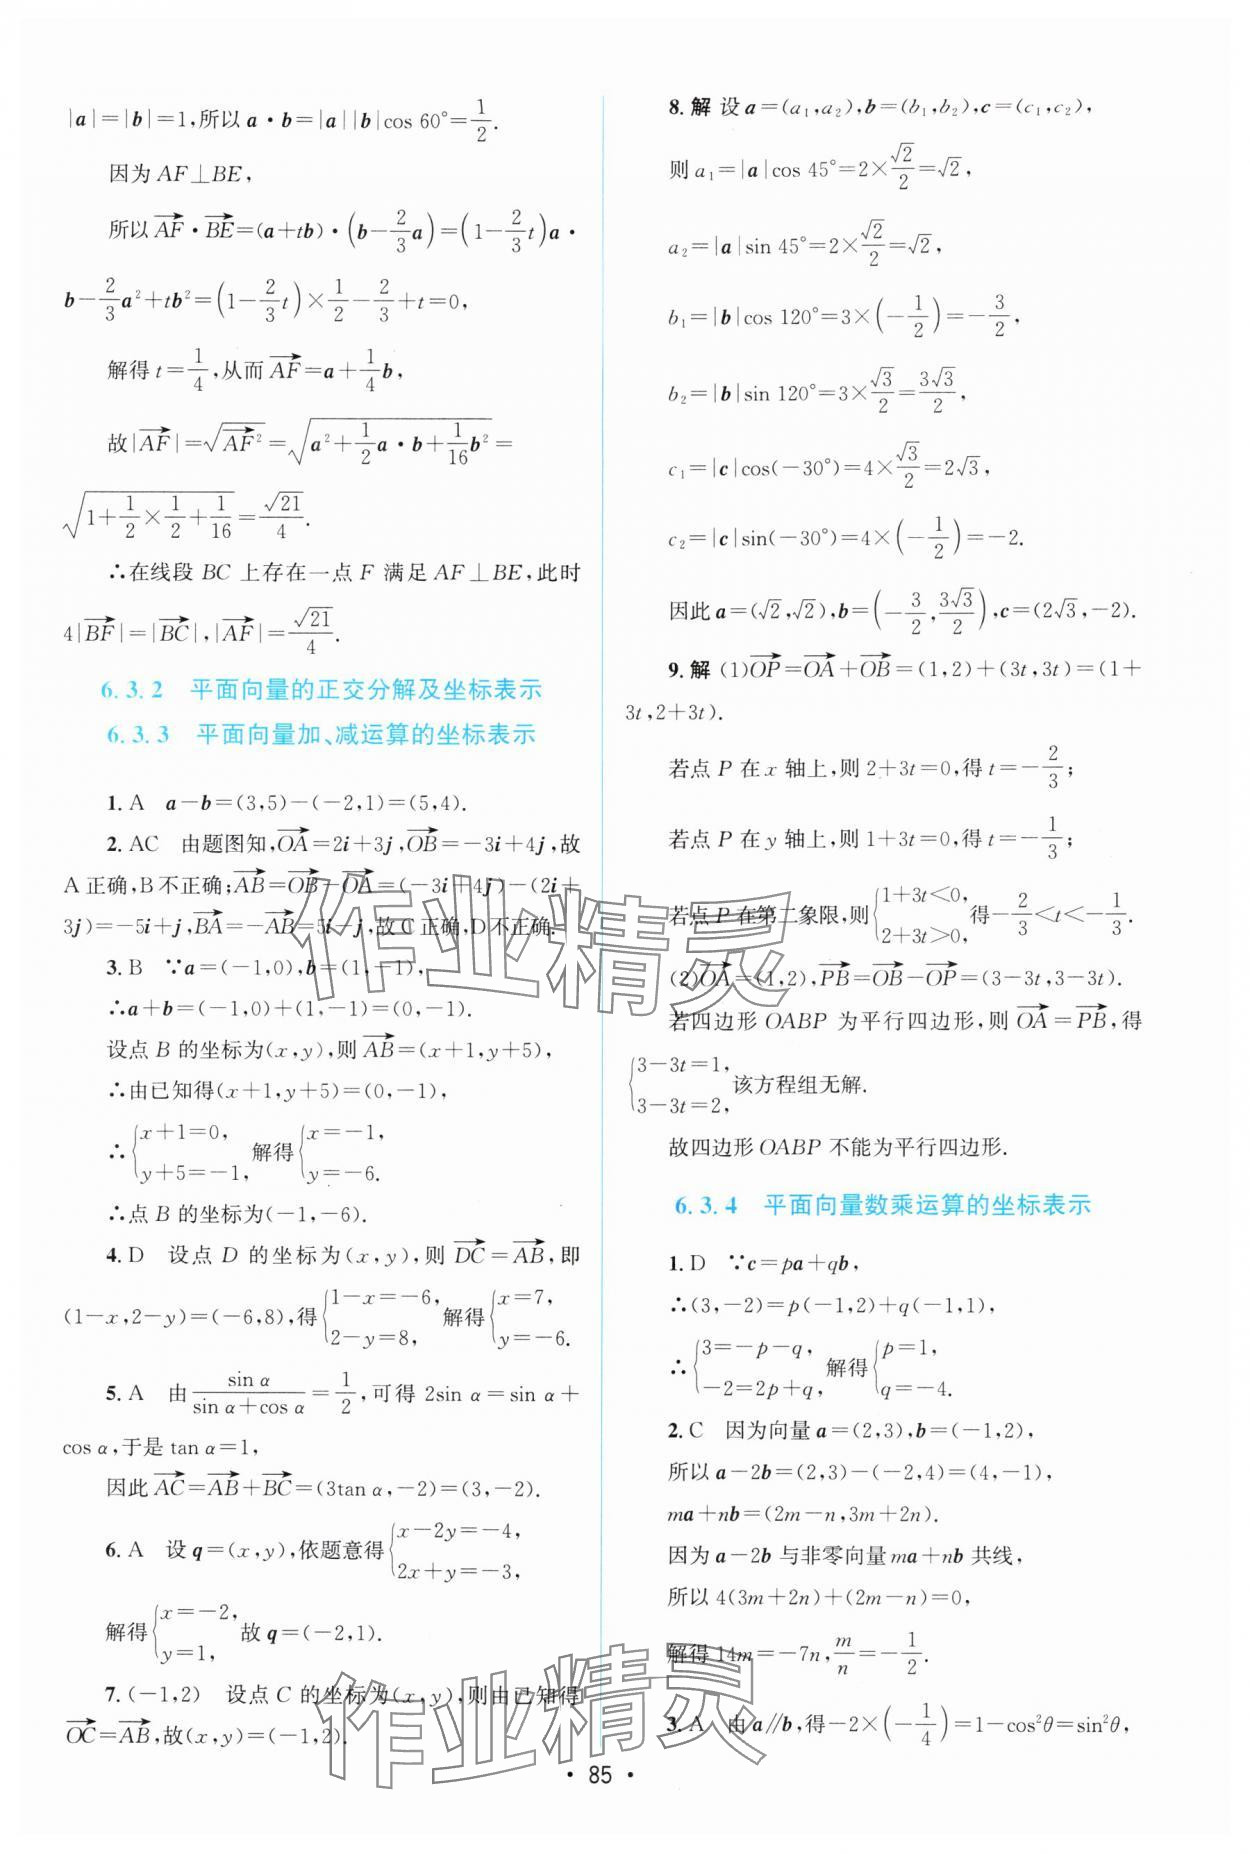 |a|=|b|=1,所以 a·b=|a||b|cos 60°=1/2.
因为 AF⊥BE,
所以 AF→·BE→=(a+tb)·(b-2/3a)=(1-2/3t)a·
b-2/3a²+tb²=(1-2/3t)×1/2-2/3+t=0,
解得 t=1/4,从而 AF→=a+1/4b,
故|AF→|=√(AF→²)=√(a²+1/2a·b+1/16b²)=
√(1+1/2×1/2+1/16)=√21/4.
∴在线段 BC 上存在一点 F 满足 AF⊥BE,此时
4|BF→|=|BC→|,|AF→|=√21/4.
6.3.2 平面向量的正交分解及坐标表示
6.3.3 平面向量加、减运算的坐标表示
1.A a-b=(3,5)-(-2,1)=(5,4).
2.AC 由题图知,OA→=2i+3j,OB→=-3i+4j,故
A正确,B不正确;AB→=OB→-OA→=(-3i+4j)-(2i+
3j)=-5i+j,BA→=-AB→=5i-j,故C正确,D不正确.
3.B ∵a=(-1,0),b=(1,-1),
∴a+b=(-1,0)+(1,-1)=(0,-1).
设点 B 的坐标为(x,y),则AB→=(x+1,y+5),
∴由已知得(x+1,y+5)=(0,-1),
∴{x+1=0, y+5=-1, 解得{x=-1, y=-6.
∴点 B 的坐标为(-1,-6).
4.D 设点 D 的坐标为(x,y),则 DC→=AB→,即
(1-x,2-y)=(-6,8),得{1-x=-6, 2-y=8, 解得{x=7, y=-6.
5.A 由 sin α/(sin α+cos α)=1/2,可得 2sin α=sin α+
cos α,于是 tan α=1,
因此 AC→=AB→+BC→=(3tan α,-2)=(3,-2).
6.A 设 q=(x,y),依题意得{x-2y=-4, 2x+y=-3,
解得{x=-2, y=1, 故 q=(-2,1).
7.(-1,2) 设点 C 的坐标为(x,y),则由已知得
OC→=AB→,故(x,y)=(-1,2).
8.解 设 a=(a₁,a₂),b=(b₁,b₂),c=(c₁,c₂),
则 a₁=|a|cos 45°=2×√2/2=√2,
a₂=|a|sin 45°=2×√2/2=√2,
b₁=|b|cos 120°=3×(-1/2)=-3/2,
b₂=|b|sin 120°=3×√3/2=3√3/2,
c₁=|c|cos(-30°)=4×√3/2=2√3,
c₂=|c|sin(-30°)=4×(-1/2)=-2.
因此 a=(√2,√2),b=(-3/2,3√3/2),c=(2√3,-2).
9.解 (1)OP→=OA→+OB→=(1,2)+(3t,3t)=(1+
3t,2+3t).
若点 P 在 x 轴上,则 2+3t=0,得 t=-2/3;
若点 P 在 y 轴上,则 1+3t=0,得 t=-1/3;
若点 P 在第二象限,则{1+3t<0, 2+3t>0, 得-2/3<t<-1/3.
(2)OA→=(1,2),PB→=OB→-OP→=(3-3t,3-3t).
若四边形 OABP 为平行四边形,则 OA→=PB→,得
{3-3t=1, 3-3t=2, 该方程组无解.
故四边形 OABP 不能为平行四边形.
6.3.4 平面向量数乘运算的坐标表示
1.D ∵c=pa+qb,
∴(3,-2)=p(-1,2)+q(-1,1),
∴{3=-p-q, -2=2p+q, 解得{p=1, q=-4.
2.C 因为向量 a=(2,3),b=(-1,2),
所以 a-2b=(2,3)-(-2,4)=(4,-1),
ma+nb=(2m-n,3m+2n).
因为 a-2b 与非零向量 ma+nb 共线,
所以 4(3m+2n)+(2m-n)=0,
解得 14m=-7n,m/n=-1/2.
3.A 由 a∥b,得-2×(-1/4)=1-cos²θ=sin²θ,
·85·
作业精灵
作业精灵